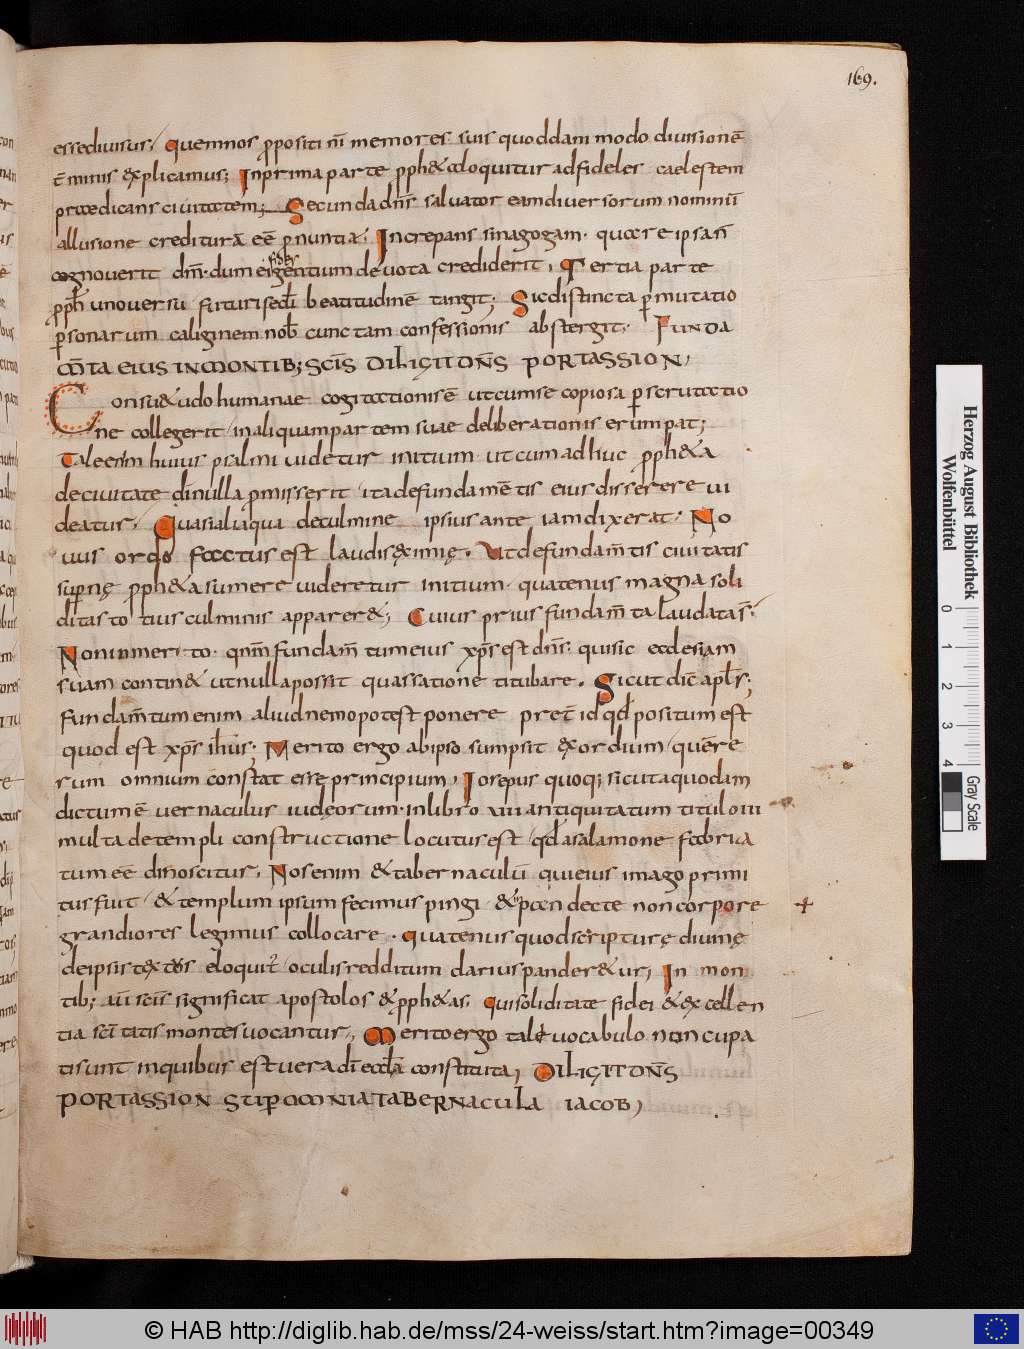 169.
esse divisus, quem nos p̄positi nr̄i memores suis quoddam modo divisionē
t̄minis explicamus; In prima parte pph&a conloquitur ad fideles caelestem
praedicans civitatem; Secunda dn̄s salvator eam diversorum nominū
allusione creditura ēē p̄nuntiat. Increpans sinagogam. quare ipsa n̄
cognoverit dm̄. dum ei gentium devota crediderit; Tertia parte
fides
pph̄ uno versu futuri scl̄i beatitudinē tangit; Sic distincta p̄mutatio
p̄sonarum caliginem nob̄ cunctam confessionis abstergit; FUNDA
M̄TA EIUS IN MONTIB; SC̄IS DILIGIT DN̄S PORTAS SION,
Consu&udo humanae cogitationis ē ut cum se copiosa p̄scrutatio
ne collegerit in aliquam partem suae deliberationis erumpat;
Tale enim huius psalmi videtur initium. ut cum adhuc pph&a
de civitate dī nulla p̄misserit ita de fundamētis eius disserere vi
deatur. Quasi aliaqua de culmine ipsius ante iam dixerat. No
vus ordo factus est laudis eximię. Ut de fundam̄tis civitatis
sup̄nę pph&a sumere videretur initium. quatenus magna soli
ditas totius culminis apparer&; Cuius prius fundam̄ta laudata s̄;
Non inmerito. qnm̄ fundam̄tum eius xp̄s est dn̄s. qui sic ecclesiam
suam contin& ut nulla possit quassatione titubare. Sicut dic̄ apl̄s;
Fundam̄tum enim aliud nemo potest ponere pret̄ id qd̄ positum est
quod est xp̄s ih̄us; Merito ergo ab ipso sumpsit exordium quē re
rum omnium constat esse principium, Iosepus quoq; sicut a quodam
dictum ē vernaculus iudeorum. in libro viii antiquitatum titulo iii
multa de templi constructione locutus est qd̄ a salamone fabrica
tum ēē dinoscitur. Nos enim & tabernaculū qui eius imago primi
tus fuit & templum ipsum fecimus pingi & in pandecte non corpore +
grandiores legimus collocare. quatenus quod scripturę divinę
de ipsis textus eloquit̄ oculis redditum clarius pander&ur; In mon
tib; aū scīs significat apostolos & pph&as. qui soliditate fidei & excellen
tia scītatis montes vocantur, Merito ergo tali vocabulo nuncupa
ti sunt in quibus est vera dī eccl̄a constituta, DILIGIT DN̄S
PORTAS SION SUP OMNIA TABERNACULA IACOB,
Herzog August Bibliothek
Wolfenbüttel
0 1 2 3 4
Gray Scale
© HAB http://diglib.hab.de/mss/24-weiss/start.htm?image=00349